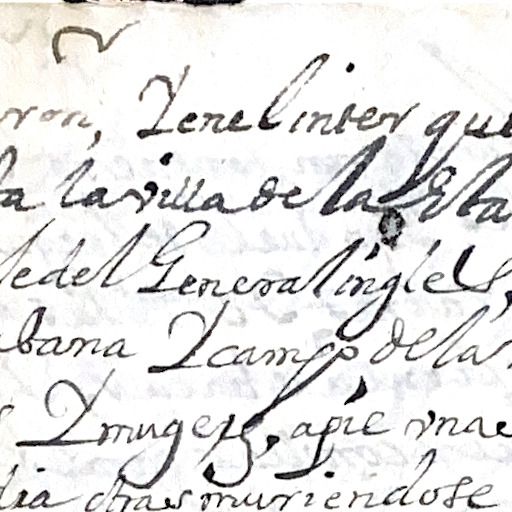 ron, Y en el inter que
la la villa de la Ha
le del General ingles,
abana Y campo, de las
s Y mugeres, a pie vna e
dia otras muriendose